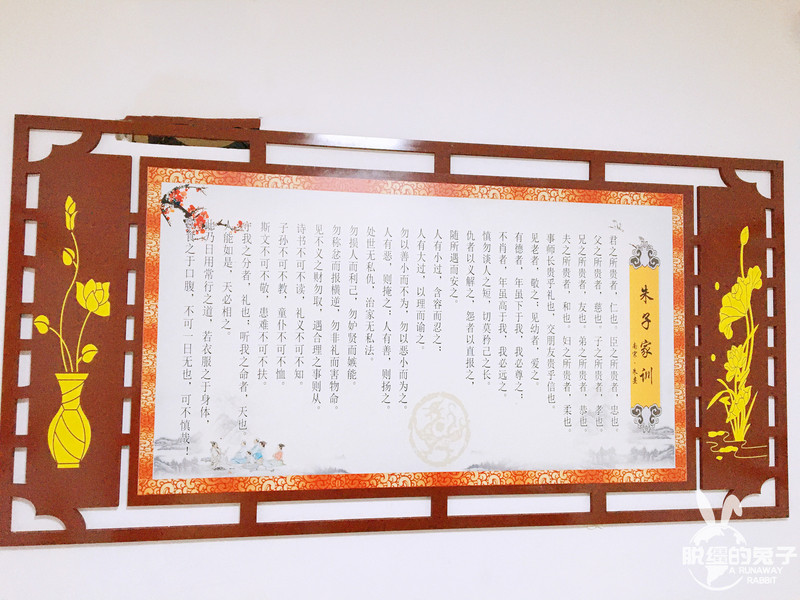 朱子家训
南宋·朱熹
君之所贵者，仁也。臣之所贵者，忠也。
父之所贵者，慈也。子之所贵者，孝也。
兄之所贵者，友也。弟之所贵者，恭也。
夫之所贵者，和也。妇之所贵者，柔也。
事师长贵乎礼也，交朋友贵乎信也。
见老者，敬之；见幼者，爱之。
有德者，年虽下于我，我必尊之；
不肖者，年虽高于我，我必远之。
慎勿谈人之短，切莫矜己之长。
仇者以义解之，怨者以直报之，
随所遇而安之。
人有小过，含容而忍之；
人有大过，以理而谕之。
勿以善小而不为，勿以恶小而为之。
人有恶，则掩之；人有善，则扬之。
处世无私仇，治家无私法。
勿损人而利己，勿妒贤而嫉能。
勿称忿而报横逆，勿非礼而害物命。
见不义之财勿取，遇合理之事则从。
诗书不可不读，礼义不可不知。
子孙不可不教，童仆不可不恤。
斯文不可不敬，患难不可不扶。
我之分者，礼也；听我之命者，天也。
能如是，天必相之。
乃日用常行之道，若衣服之于身体，
食之于口腹，不可一日无也，可不慎哉！
脱缰的兔子
A RUNAWAY
RABBIT